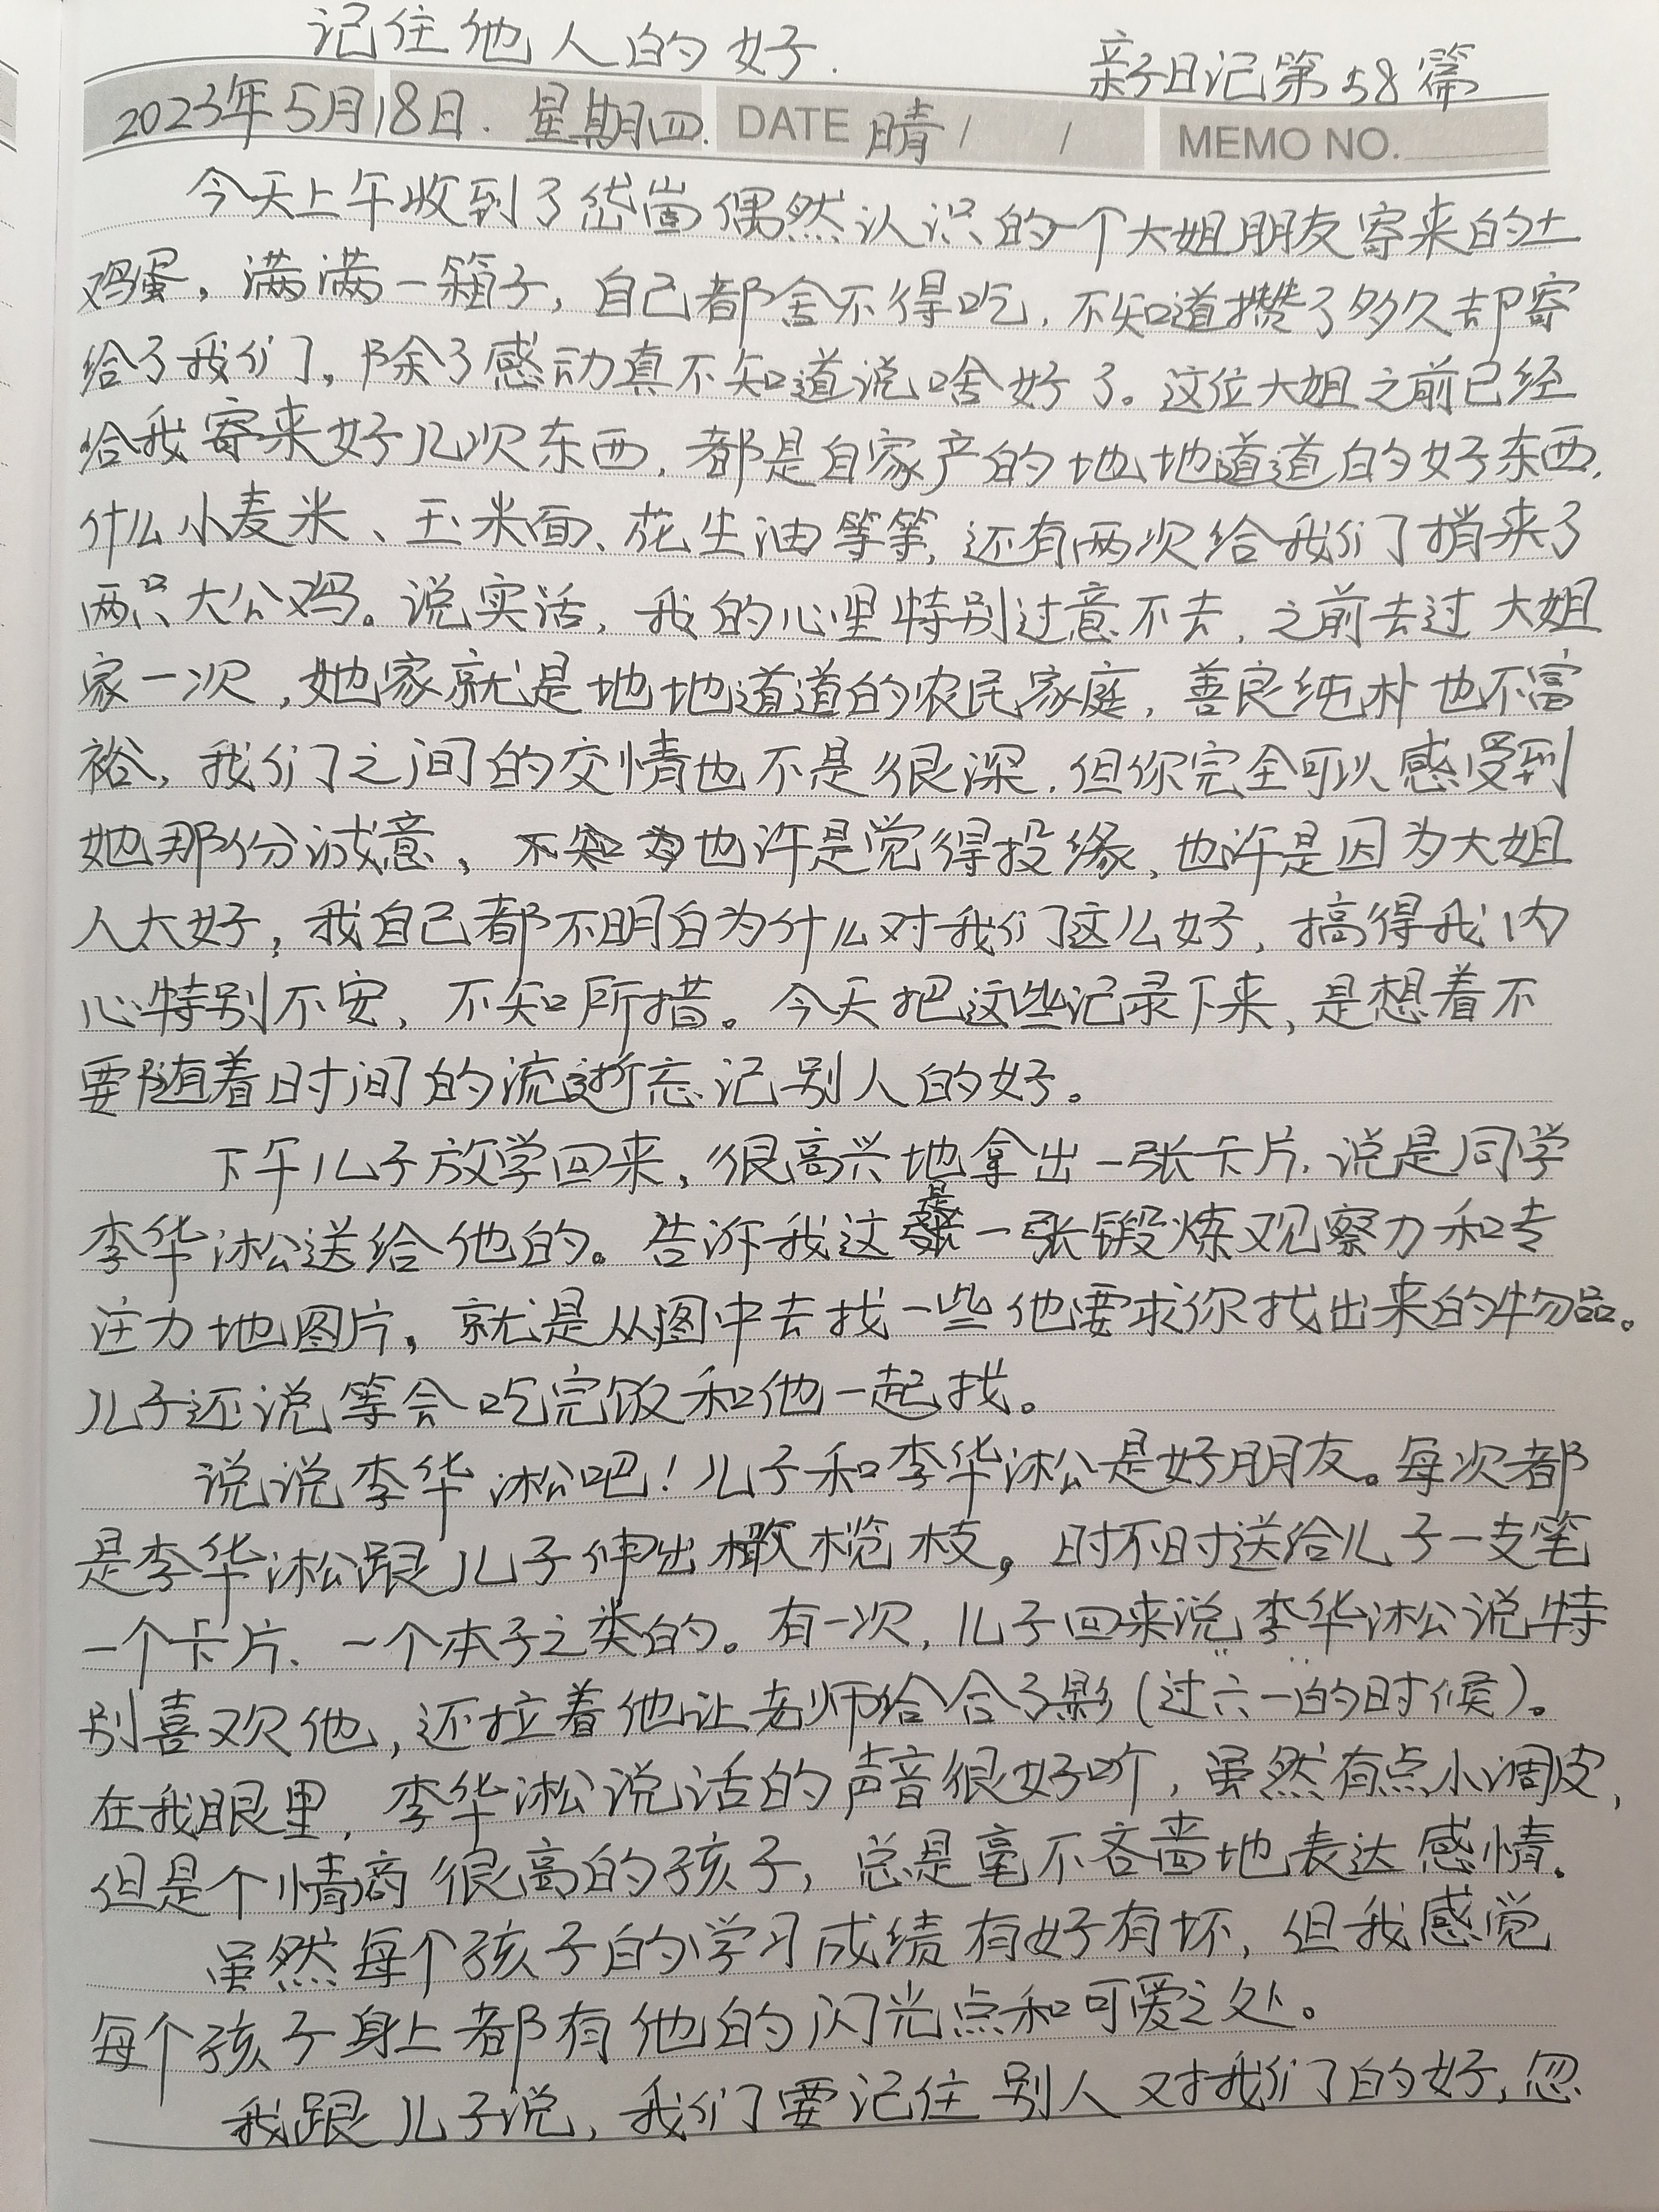 记住他人的好.
亲子日记第58篇
2023年5月18日. 星期四. DATE 晴 / / MEMO NO.
今天上午收到了岱崮偶然认识的一个大姐朋友寄来的土
鸡蛋，满满一箱子，自己都舍不得吃，不知道攒了多久却寄
给了我们。除了感动真不知道说啥好了。这位大姐之前已经
给我寄来好几次东西，都是自家产的地地道道的好东西，
什么小麦米、玉米面、花生油等等，还有两次给我们捎来了
两只大公鸡。说实话，我的心里特别过意不去，之前去过大姐
家一次，她家就是地地道道的农民家庭，善良纯朴也不富
裕，我们之间的交情也不是很深，但你完全可以感受到
她那份诚意，也许是觉得投缘，也许是因为大姐
人太好，我自己都不明白为什么对我们这么好，搞得我内
心特别不安，不知所措。今天把这些记录下来，是想着不
要随着时间的流逝忘记别人的好。
下午儿子放学回来，很高兴地拿出一张卡片，说是同学
李华淞送给他的。告诉我这是一张锻炼观察力和专
注力地图片，就是从图中去找一些他要求你找出来的物品。
儿子还说等会吃完饭和他一起找。
说说李华淞吧！儿子和李华淞是好朋友。每次都
是李华淞跟儿子伸出橄榄枝，时不时送给儿子一支笔
一个卡片、一个本子之类的。有一次，儿子回来说李华淞说特
别喜欢他，还拉着他让老师给合了影(过六一的时候)。
在我眼里，李华淞说话的声音很好听，虽然有点小调皮，
但是个情商很高的孩子，总是毫不吝啬地表达感情。
虽然每个孩子的学习成绩有好有坏，但我感觉
每个孩子身上都有他的闪光点和可爱之处。
我跟儿子说，我们要记住别人对我们的好，忽